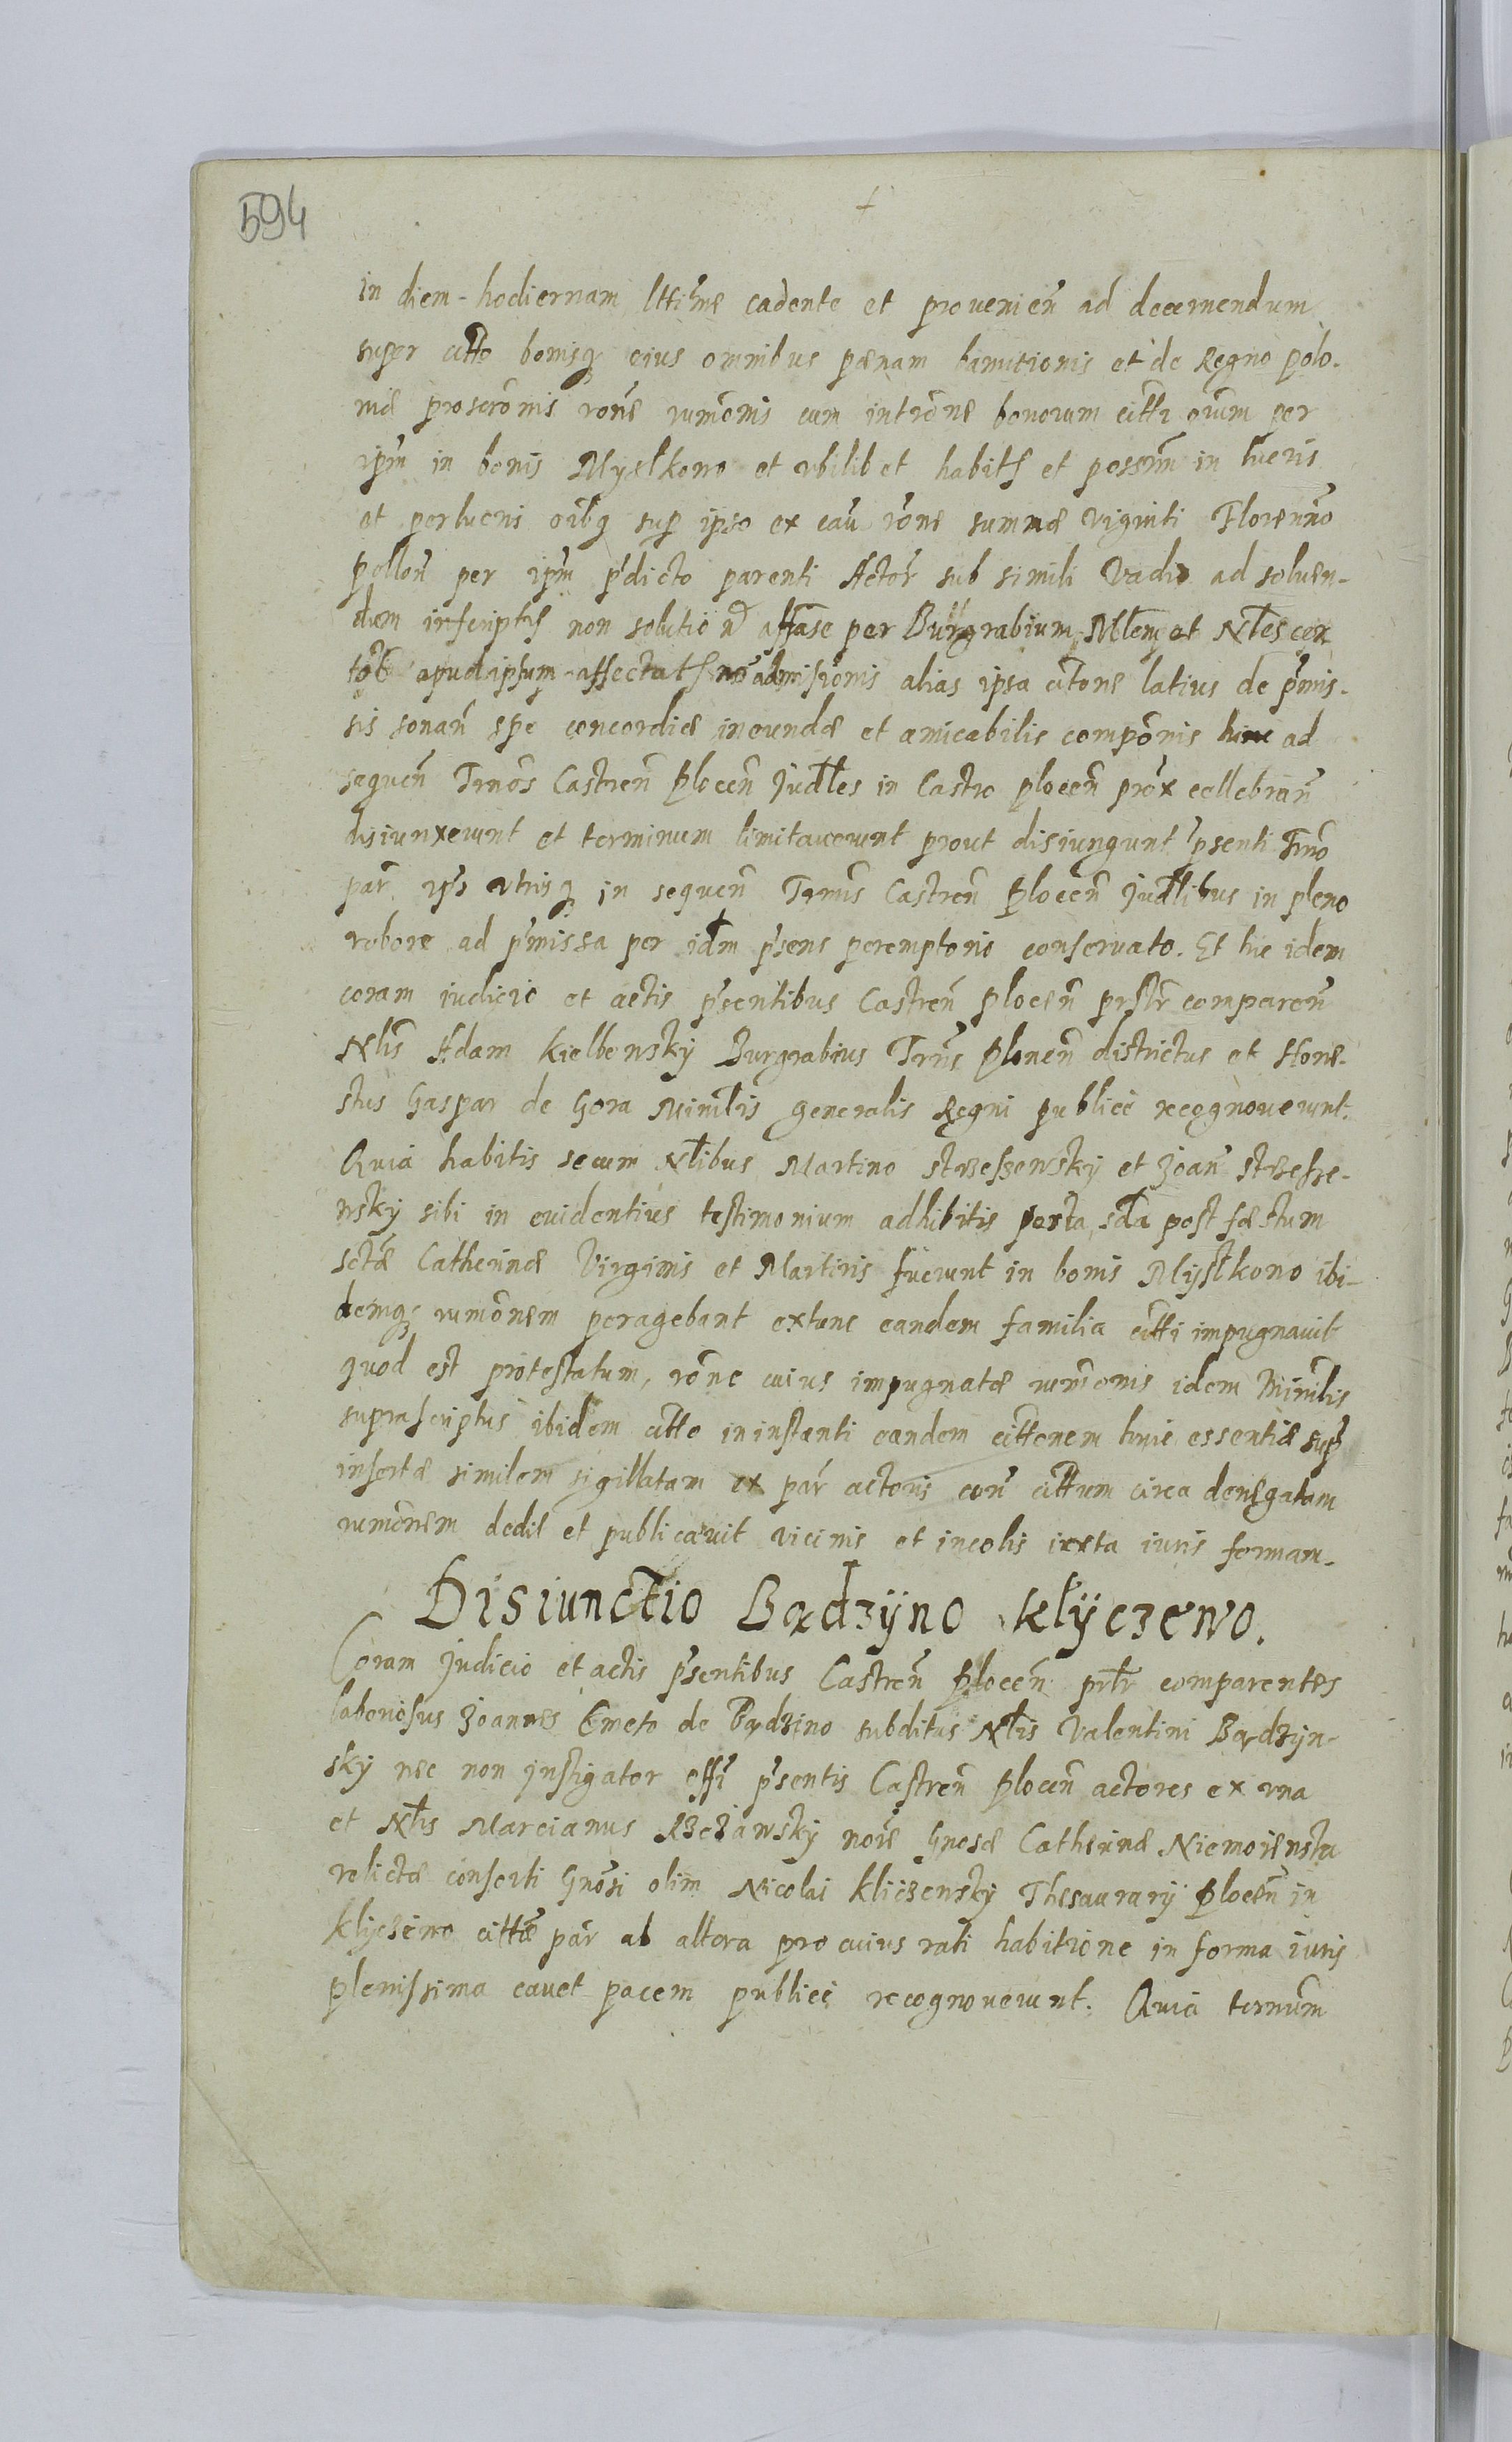 594
in diem hodiernam lttime cadente et provenien ad decernendum
super citto bonisq eius omnibus pœnam bannitionis et de Regno polo-
niæ proscronis rone rumonis cum introne bonorum citti oium per
ipm in bonis Myslkowo et ubilibet habit et possnm in lucris
et perlucris oibq sup ipso ex eau rone summæ viginti Floreno
pollon per ipm pdicto parenti Actor sub simili Vadio ad soluen-
dum inscriptis non solutio affase per Burgrabium Mlem et Nles
apud ipsum affectat no admissionis alias ipsa citone latius de pmis-
sis sonan spe concordiæ ineundæ et amicabilis componis hinc ad
sequen Trnos Castren plocen Judles in Castro plocen prox cellebran
disiunxerunt et terminum limitaverunt prout disiungunt psenti Trno
par ips utrisq in sequen Trnis Castren plocen Judlibus in pleno
robore ad pmissa per idm psens peremptorio conservato. Et hic idem
coram iudicio et actis psentibus Castren plocen prsltr comparen
Nlis Adam Kielbowsky Burgrabius Trnus plonen districtus et Hone-
stus Gaspar de Gora Minrlis generalis Regni publice recognoverunt.
Quia habitis secum Nlibus Martino strzeszewsky et Joan strzesze-
wsky sibi in euidentius testimonium adhibitis feria sda post fæstum
sctæ Catherinæ Virginis et Martiris fuerunt in bonis Myslkowo ibi-
demq rumonem peragebant extunc eandem familia citti impugnauit
quod est protestatum, rone cuius impugnatæ rumonis idem Minrlis
suprascriptus ibidem citto in instanti eandem cittonem huic essentiæ sup
insertæ similem sigillatam ex par actoris con cittum circa denegatam
rumonem dedit et publicavit vicinis et incolis iuxta iuris formam.
Disiunctio Bądzyno Klyczewo.
Coram Judicio et actis psentibus Castren plocen prltr comparentes
laboriosus Joannes Cmeto de Bądzino subditus Nlis Valentini Bądzyn-
sky nec non instigator offi psentis Castren plocen actores ex una
et Nlis Marcianus Rzezawsky noie Gnosæ Catherinæ Niemoiewska
relictæ consorti Gnosi olim Nicolai Kliczewsky Thesaurarij plocen in
Klyczewo cittæ par ab altera pro cuius rati habitione in forma iuris
plenissima cavet pacem publice recognoverunt. Quia ternum